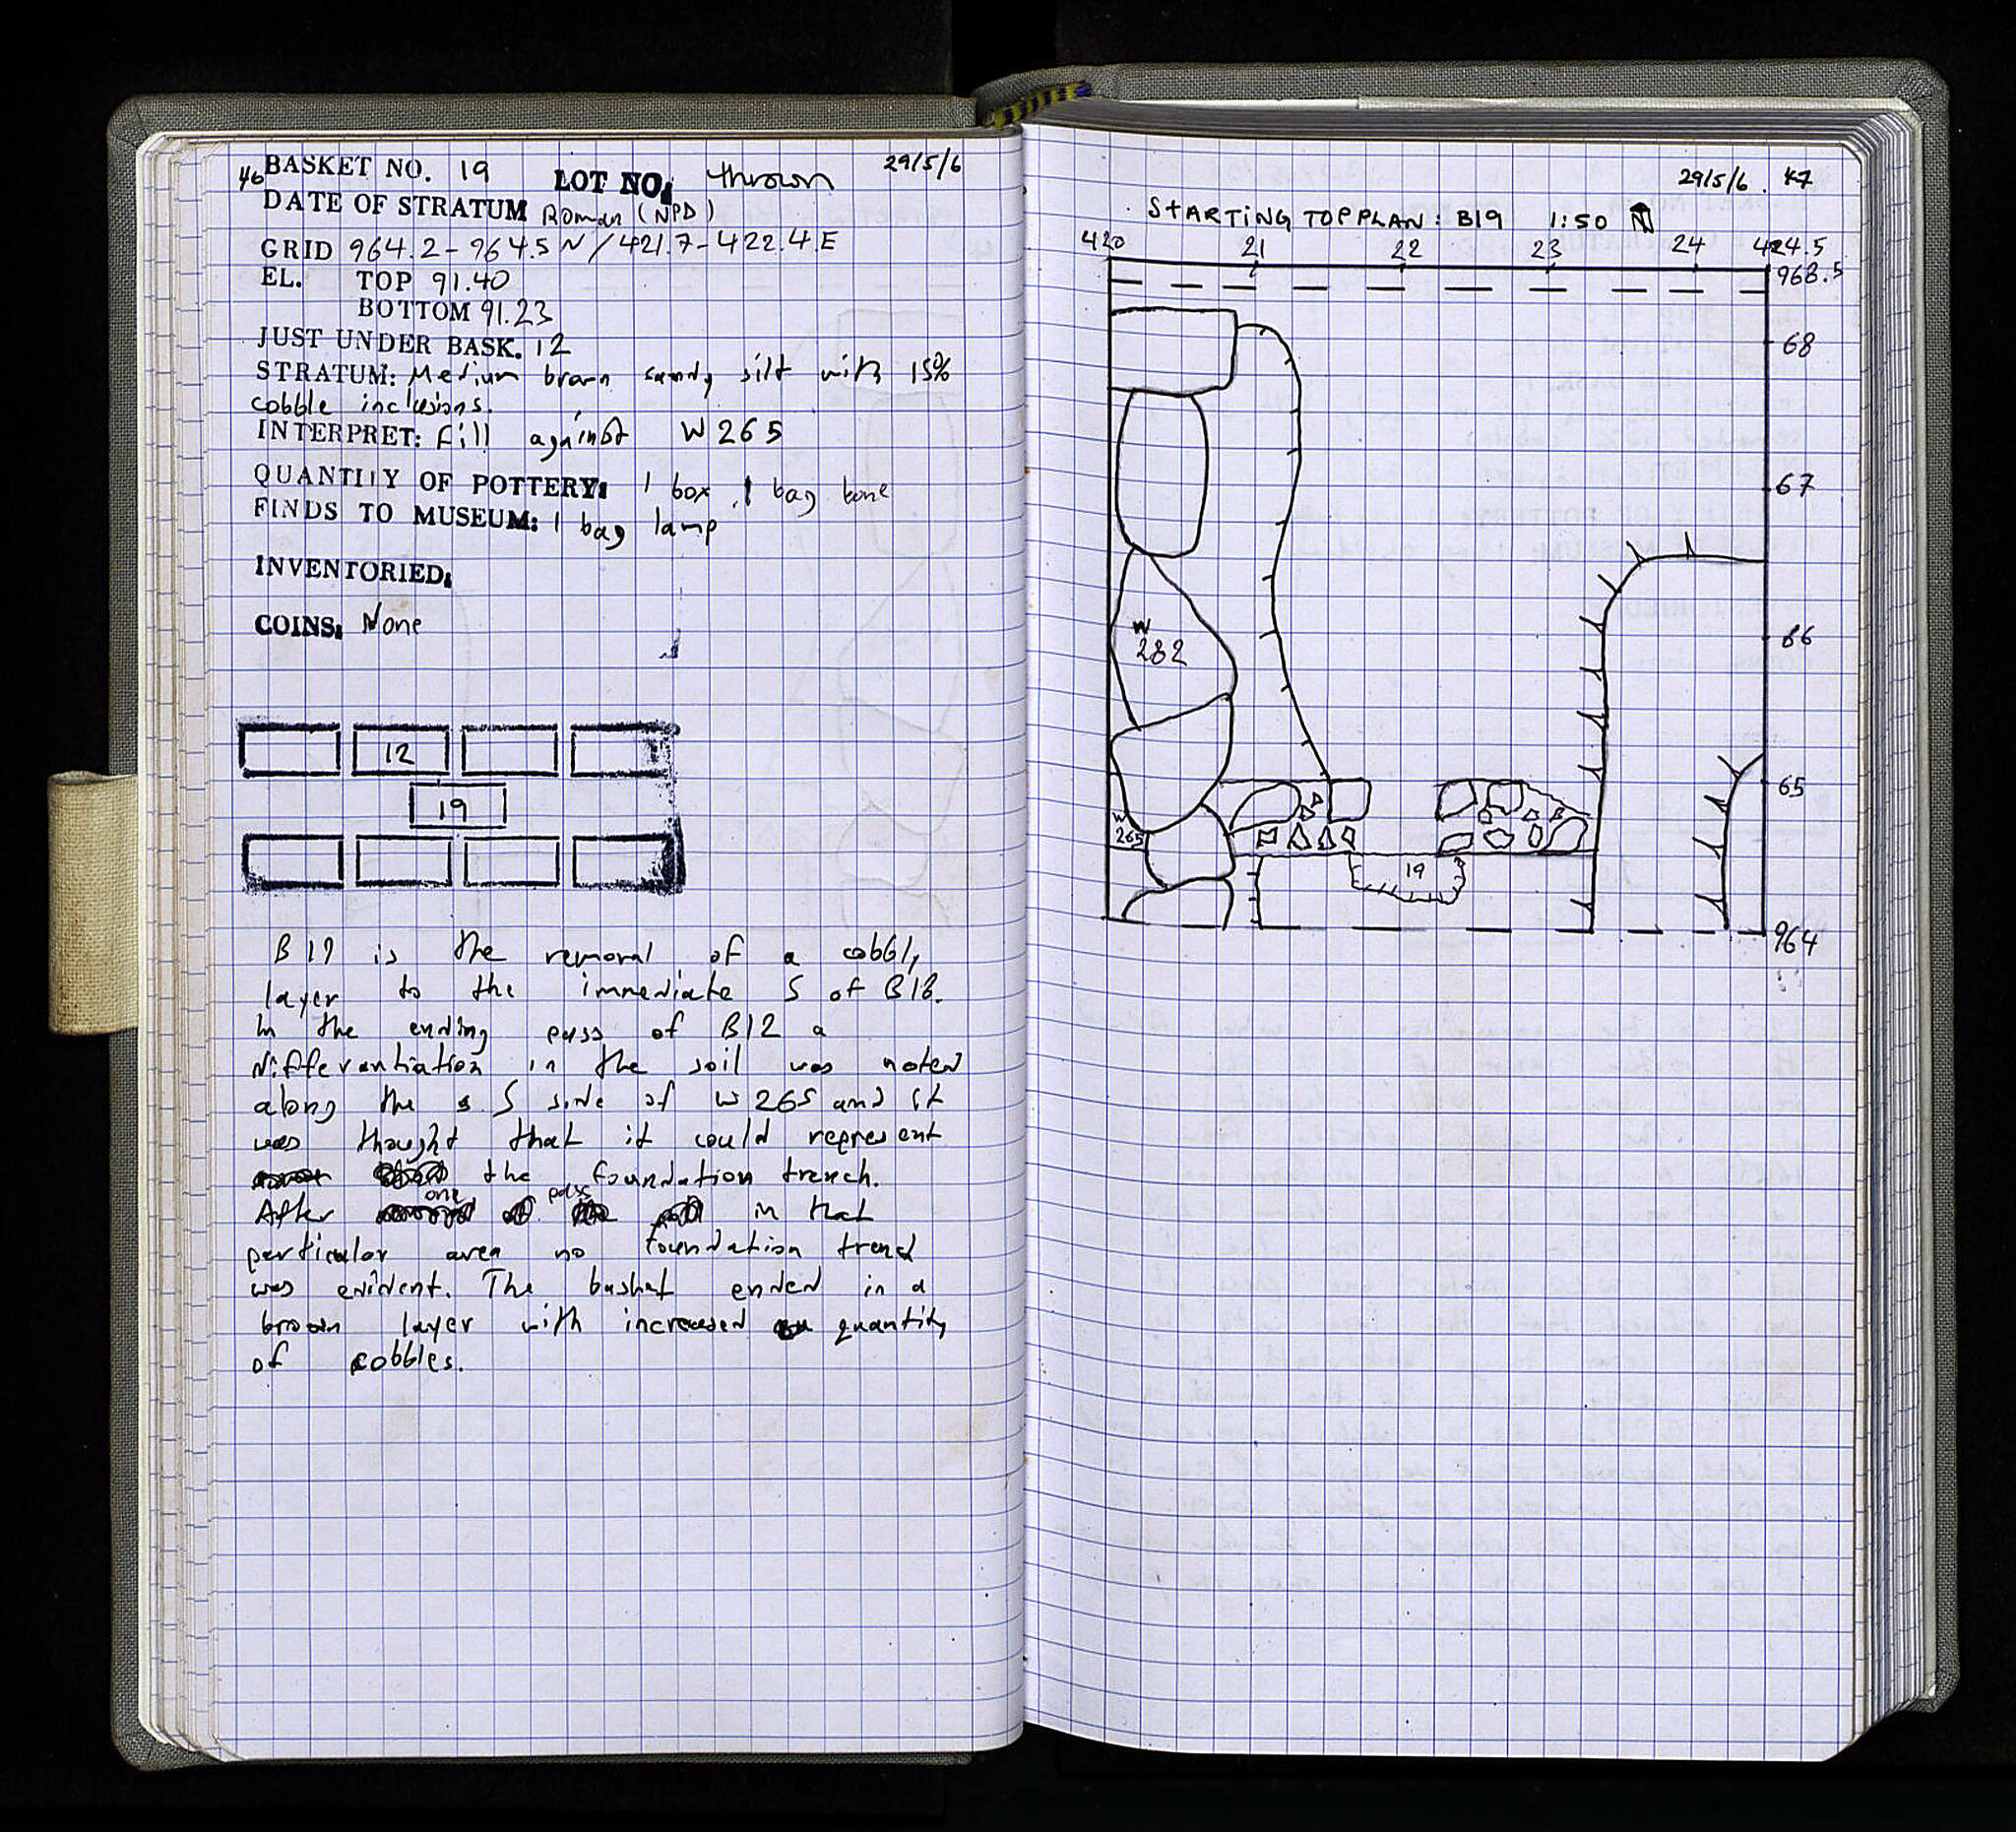 46 BASKET NO. 19 LOT NO: thrown 29/5/6
DATE OF STRATUM Roman (NPD)
GRID 964.2-964.5 N / 421.7-422.4 E
EL. TOP 91.40
BOTTOM 91.23
JUST UNDER BASK. 12
STRATUM: Medium brown sandy silt with 15%
cobble inclusions.
INTERPRET: Fill against W 265
QUANTITY OF POTTERY: 1 box, 1 bag bone
FINDS TO MUSEUM: 1 bag lamp
INVENTORIED:
COINS: None
12
19
B19 is the removal of a cobbly
layer to the immediate S of B18.
In the ending pass of B12 a
differentiation in the soil was noted
along the S side of W 265 and it
was thought that it could represent
the foundation trench.
After one pass in that
particular area no foundation trend
was evident. The basket ended in a
brown layer with increased quantity
of cobbles.
29/5/6 47
STARTING TOP PLAN: B19 1:50 N
420 21 22 23 24 424.5
968.5
68
67
W
282
66
65
W
265
19
964